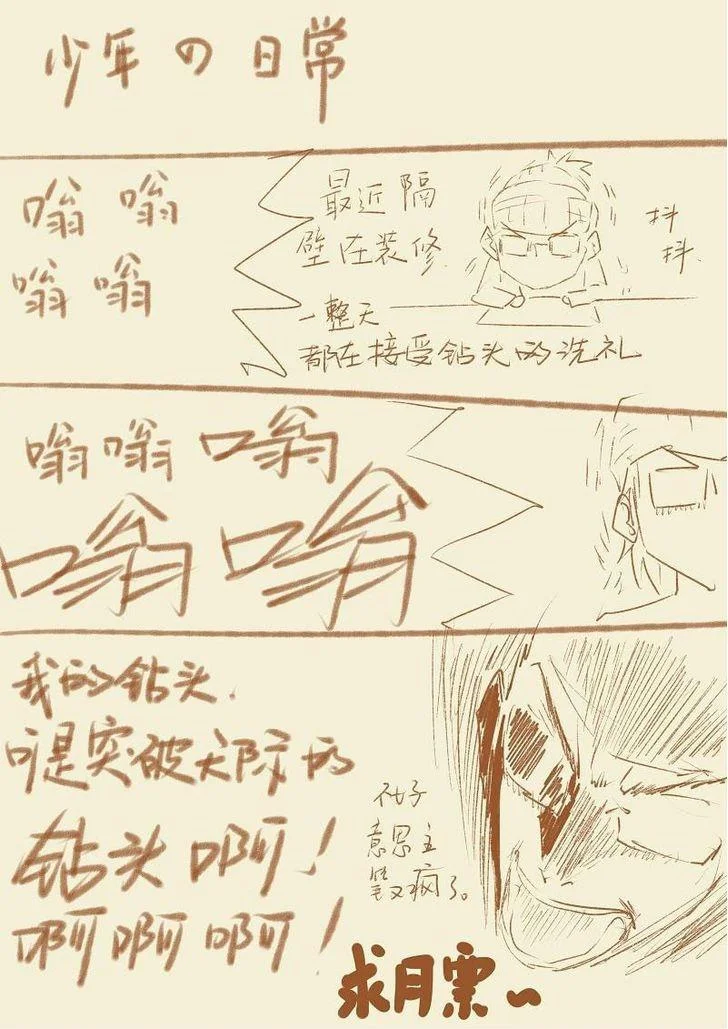 少年の日常
嗡 嗡
嗡 嗡
最近隔
壁在装修.
一整天
都在接受钻头的洗礼
抖
抖.
嗡嗡嗡
嗡嗡
我的钻头.
是突破天际的
钻头啊!
啊啊啊!
不好
意思主
笔又疯了。
求月票~